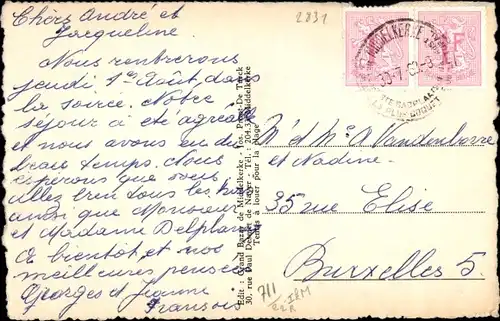 2831
Chers André et
Jacqueline
Nous rentrerons
jeudi, 1er Août, dans
la soirée. Notre
séjour a été agréable
et nous avons eu de
beau temps. Nous
espérons que vous
allez bien tous les
ainsi que Monsieur
et Madame
A bientôt et nos
meilleures pensées
Georges et Jeanne
François
Edit. : Grand Bazar de Middelkerke - Jos. Peter-De Turck
30, rue Paul Debaer de Nayer Tél. : 204.3 Middelkerke
Tentes à louer pour la plage
MIDDELKERKE
30-7
LA PLUS COQUETTE
F
M et Me A. Vandenborre
et Nadine
35 rue Elise
Bruxelles 5.
711